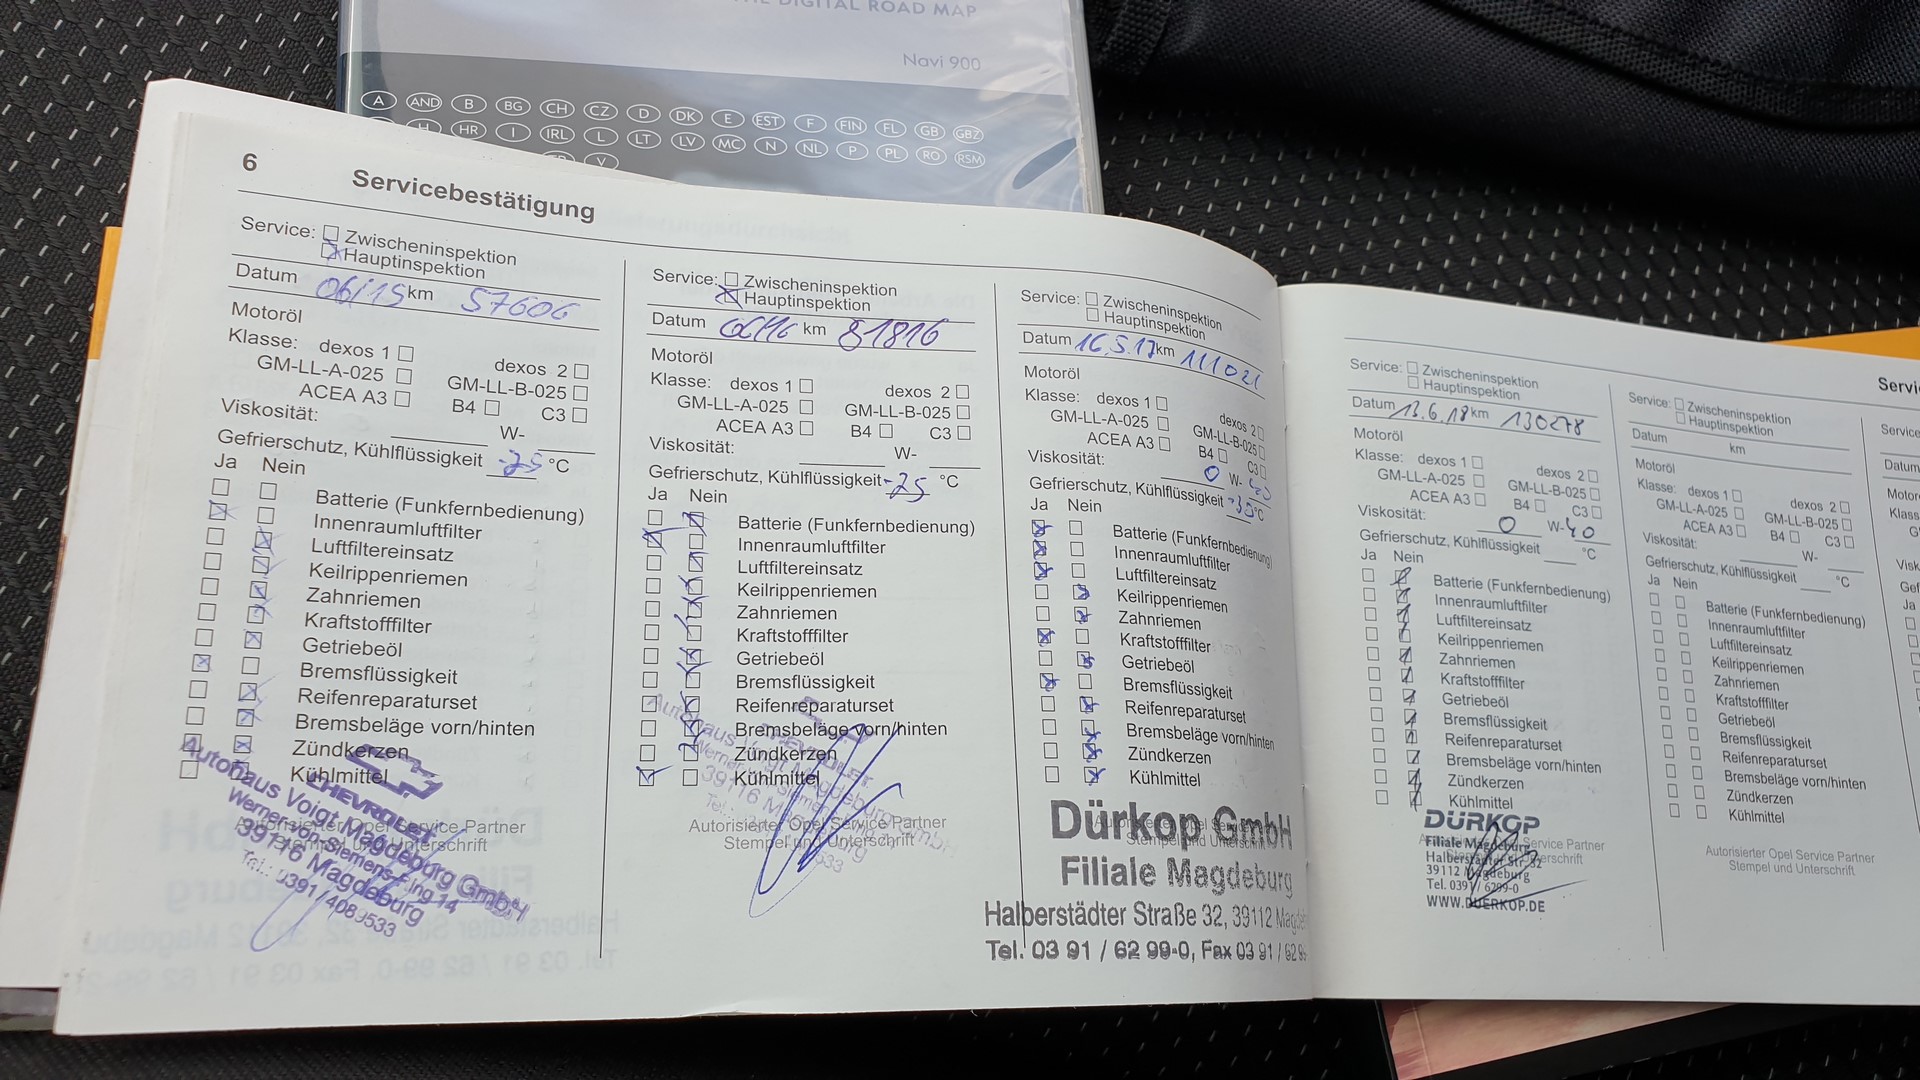 THE DIGITAL ROAD MAP
Navi 900
A AND B BG CH CZ D DK E EST F FIN FL GB GBZ
H HR I IRL L LT LV MC N NL P PL RO RSM
V
6 Servicebestätigung
Service: Zwischeninspektion
Hauptinspektion
Datum 06/15 km 57606
Motoröl
Klasse: dexos 1 dexos 2
GM-LL-A-025 GM-LL-B-025
ACEA A3 B4 C3
Viskosität: W-
Gefrierschutz, Kühlflüssigkeit -25 °C
Ja Nein
Batterie (Funkfernbedienung)
Innenraumluftfilter
Luftfiltereinsatz
Keilrippenriemen
Zahnriemen
Kraftstofffilter
Getriebeöl
Bremsflüssigkeit
Reifenreparaturset
Bremsbeläge vorn/hinten
Zündkerzen
Kühlmittel
Autorisierter Opel Service Partner
Stempel und Unterschrift
CHEVROLET
Autohaus Voigt Magdeburg GmbH
Werner-von-Siemens-Ring 14
39116 Magdeburg
Tel.: 0391/4089533
Service: Zwischeninspektion
Hauptinspektion
Datum km 81816
Motoröl
Klasse: dexos 1 dexos 2
GM-LL-A-025 GM-LL-B-025
ACEA A3 B4 C3
Viskosität: W-
Gefrierschutz, Kühlflüssigkeit -25 °C
Ja Nein
Batterie (Funkfernbedienung)
Innenraumluftfilter
Luftfiltereinsatz
Keilrippenriemen
Zahnriemen
Kraftstofffilter
Getriebeöl
Bremsflüssigkeit
Reifenreparaturset
Bremsbeläge vorn/hinten
Zündkerzen
Kühlmittel
Autorisierter Opel Service Partner
Stempel und Unterschrift
CHEVROLET
Autohaus Voigt Magdeburg GmbH
Service: Zwischeninspektion
Hauptinspektion
Datum 16.5.17 km 111021
Motoröl
Klasse: dexos 1 dexos 2
GM-LL-A-025 GM-LL-B-025
ACEA A3 B4 C3
Viskosität: 0 W-
Gefrierschutz, Kühlflüssigkeit °C
Ja Nein
Batterie (Funkfernbedienung)
Innenraumluftfilter
Luftfiltereinsatz
Keilrippenriemen
Zahnriemen
Kraftstofffilter
Getriebeöl
Bremsflüssigkeit
Reifenreparaturset
Bremsbeläge vorn/hinten
Zündkerzen
Kühlmittel
Dürkop GmbH
Filiale Magdeburg
Halberstädter Straße 32, 39112
Tel. 03 91 / 62 99-0, Fax 03 91 / 62
Service: Zwischeninspektion
Hauptinspektion
Datum 13.6.18 km 130278
Motoröl
Klasse: dexos 1 dexos 2
GM-LL-A-025 GM-LL-B-025
ACEA A3 B4 C3
Viskosität: 0 W-40
Gefrierschutz, Kühlflüssigkeit °C
Ja Nein
Batterie (Funkfernbedienung)
Innenraumluftfilter
Luftfiltereinsatz
Keilrippenriemen
Zahnriemen
Kraftstofffilter
Getriebeöl
Bremsflüssigkeit
Reifenreparaturset
Bremsbeläge vorn/hinten
Zündkerzen
Kühlmittel
DÜRKOP
Filiale Magdeburg
Halberstädter Str. 32
39112 Magdeburg
Tel. 0391/ 6299-0
WWW.DUERKOP.DE
Servi
Service: Zwischeninspektion
Hauptinspektion
Datum km
Motoröl
Klasse: dexos 1 dexos 2
GM-LL-A-025 GM-LL-B-025
ACEA A3 B4 C3
Viskosität: W-
Gefrierschutz, Kühlflüssigkeit °C
Ja Nein
Batterie (Funkfernbedienung)
Innenraumluftfilter
Luftfiltereinsatz
Keilrippenriemen
Zahnriemen
Kraftstofffilter
Getriebeöl
Bremsflüssigkeit
Reifenreparaturset
Bremsbeläge vorn/hinten
Zündkerzen
Kühlmittel
Autorisierter Opel Service Partner
Stempel und Unterschrift
Service
Datum
Motor
Klass
Visk
Gef
Ja